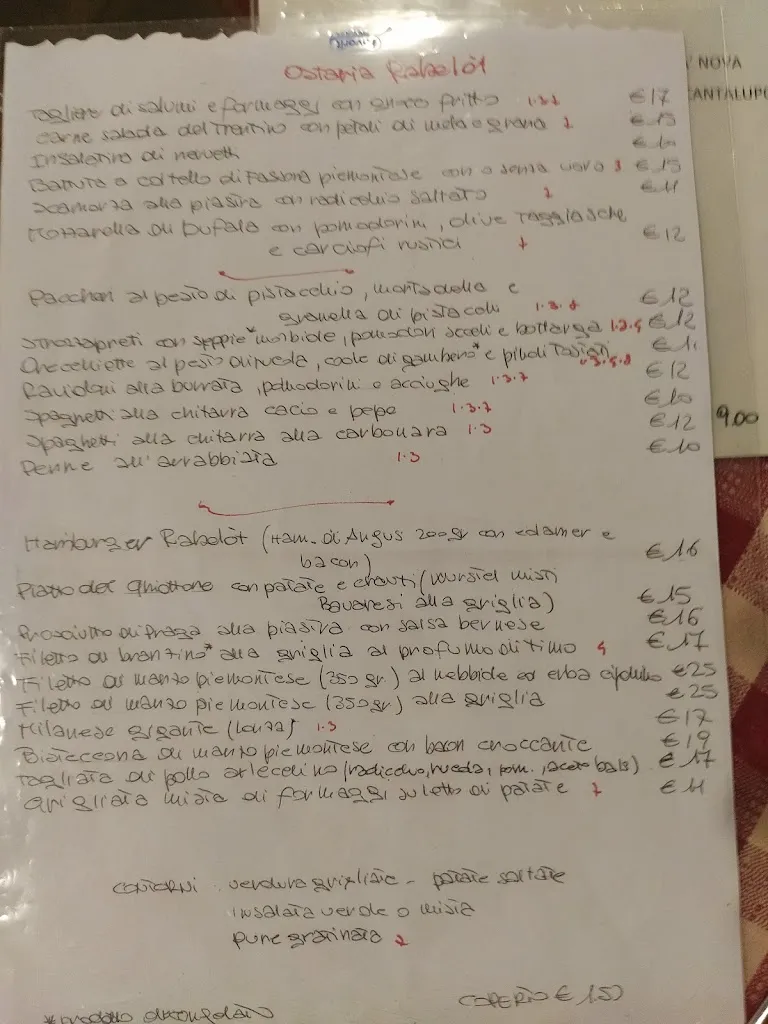 Osteria Rabelòt
NOVA
CANTALUPO
Tagliere di salumi e formaggi con gnocco fritto 1.3.7 €17
Carne salada del Trentino con petali di mela e grana 7 €15
Insalatina di nervetti €10
Battuta a coltello di Fassona piemontese con o senza uovo 3 €15
Scamorza alla piastra con radicchio saltato 7 €11
Mozzarella di bufala con pomodorini, olive Taggiasche
e carciofi rustici 7 €12
Paccheri al pesto di pistacchio, mortadella e
granella di pistacchi 1.3.8 €12
Strozzapreti con seppie* morbide, pomodori secchi e bottarga €12
Orecchiette al pesto di rucola, code di gambero* e
Ravioloni alla burrata, pomodorini e acciughe 1.3.7 €12
Spaghetti alla chitarra cacio e pepe 1.3.7 €10
Spaghetti alla chitarra alla carbonara 1.3 €12
9.00
Penne all'arrabbiata 1.3 €10
Hamburger Rabelòt (Ham. di Angus 200gr con edamer e
bacon) €16
Piatto del Ghiottone con patate e crauti (wurstel misti
Bavaresi alla griglia) €15
Prosciutto di Praga alla piastra con salsa bernese €16
Filetto di branzino* alla griglia al profumo di timo 4 €17
Filetto di manzo piemontese (350 gr.) al nebbiolo ed erba cipollina €25
Filetto di manzo piemontese (350gr) alla griglia €25
Milanese gigante (lonza) 1.3 €17
Bisteccona di manzo piemontese con bacon croccante €19
Tagliata di pollo arlecchino (radicchio, rucola, pom., aceto bals) €17
Grigliata mista di formaggi su letto di patate 7 €11
CONTORNI verdura grigliate - patate saltate
insalata verde o mista
pure gratinata 7
COPERTO € 1.50
*prodotto